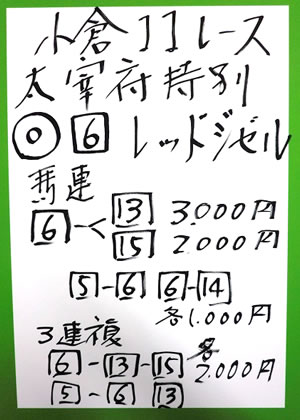 小倉11レース
太宰府特別
◎ 6 レッドジゼル
馬連
6-< 13 3.000円
15 2.000円
5-6 6-14
各1.000円
3連複
6-13-15 各
2.000円
5-6 13